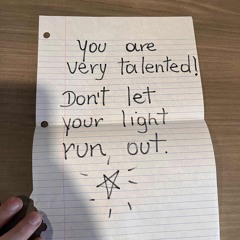 You are
very talented!
Don't let
your light
run, out.